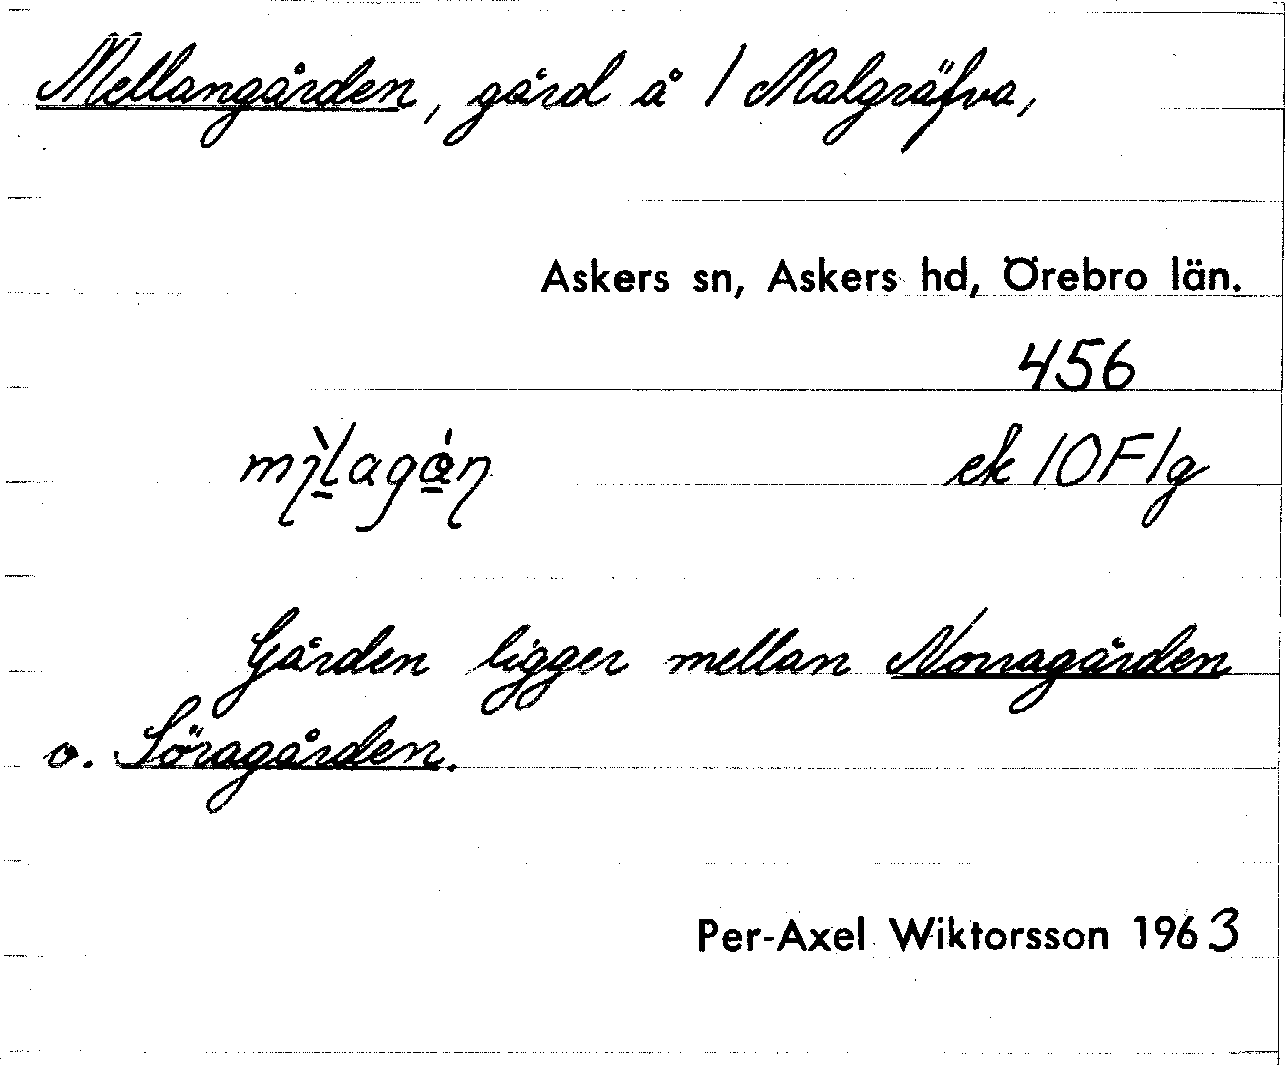 Mellangården, gård å 1 Malgräfva,
Askers sn, Askers hd, Örebro län.
456
ek 10F1g
Gården ligger mellan Norragården
o. Söragården.
Per-Axel Wiktorsson 1963